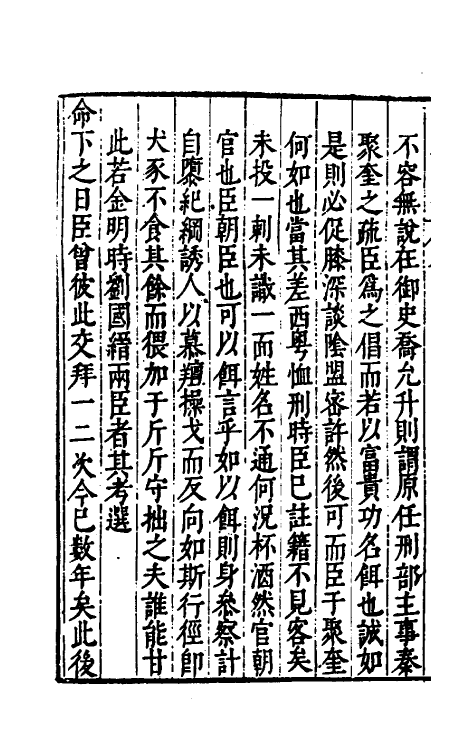 不容無說在御史喬允升則謂原任刑部主事秦
聚奎之疏臣為之倡而若以富貴功名餌也誠如
是則必促膝深談陰盟密許然後可而臣于聚奎
何如也當其差西粵恤刑時臣已註籍不見客矣
未投一刺未識一面姓名不通何況杯酒然官朝
官也臣朝臣也可以餌言乎如以餌則身叅察計
自隳紀綱誘人以慕羶操戈而反向如斯行徑卽
犬豕不食其餘而猥加于斤斤守拙之夫誰能甘
此若金明時劉國縉兩臣者其考選
命下之日臣曾彼此交拜一二次今已數年矣此後